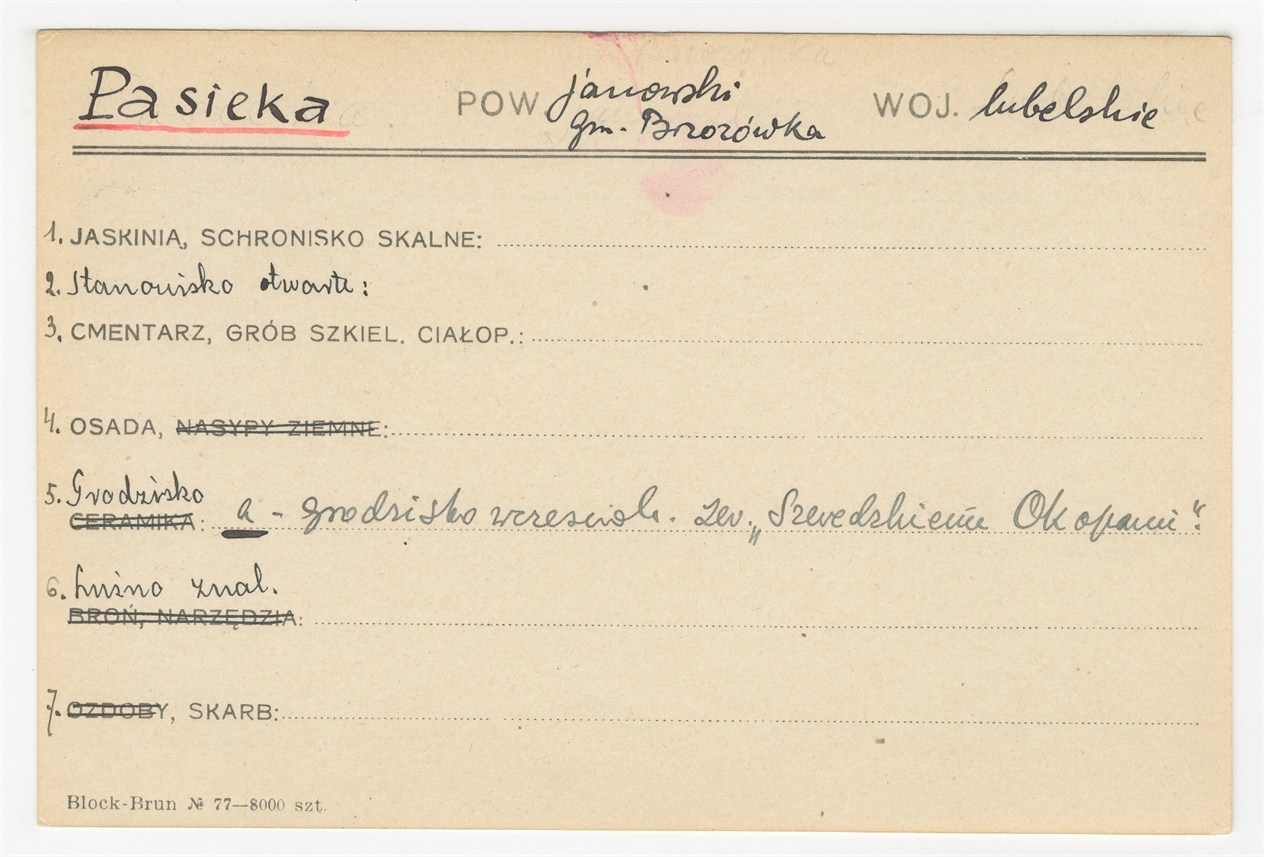 Pasieka POW janowski WOJ. lubelskie
gm. Brzozówka
1. JASKINIA, SCHRONISKO SKALNE:
2. Stanowisko otwarte:
3. CMENTARZ, GRÓB SZKIEL. CIAŁOP.:
4. OSADA, NASYPY ZIEMNE:
5. Grodzisko
CERAMIKA: a - grodzisko wczesnośr. zw. „Szwedzkiemi Okopami".
6. Luźno znal.
BROŃ, NARZĘDZIA:
7. OZDOBY, SKARB:
Block-Brun № 77—8000 szt.